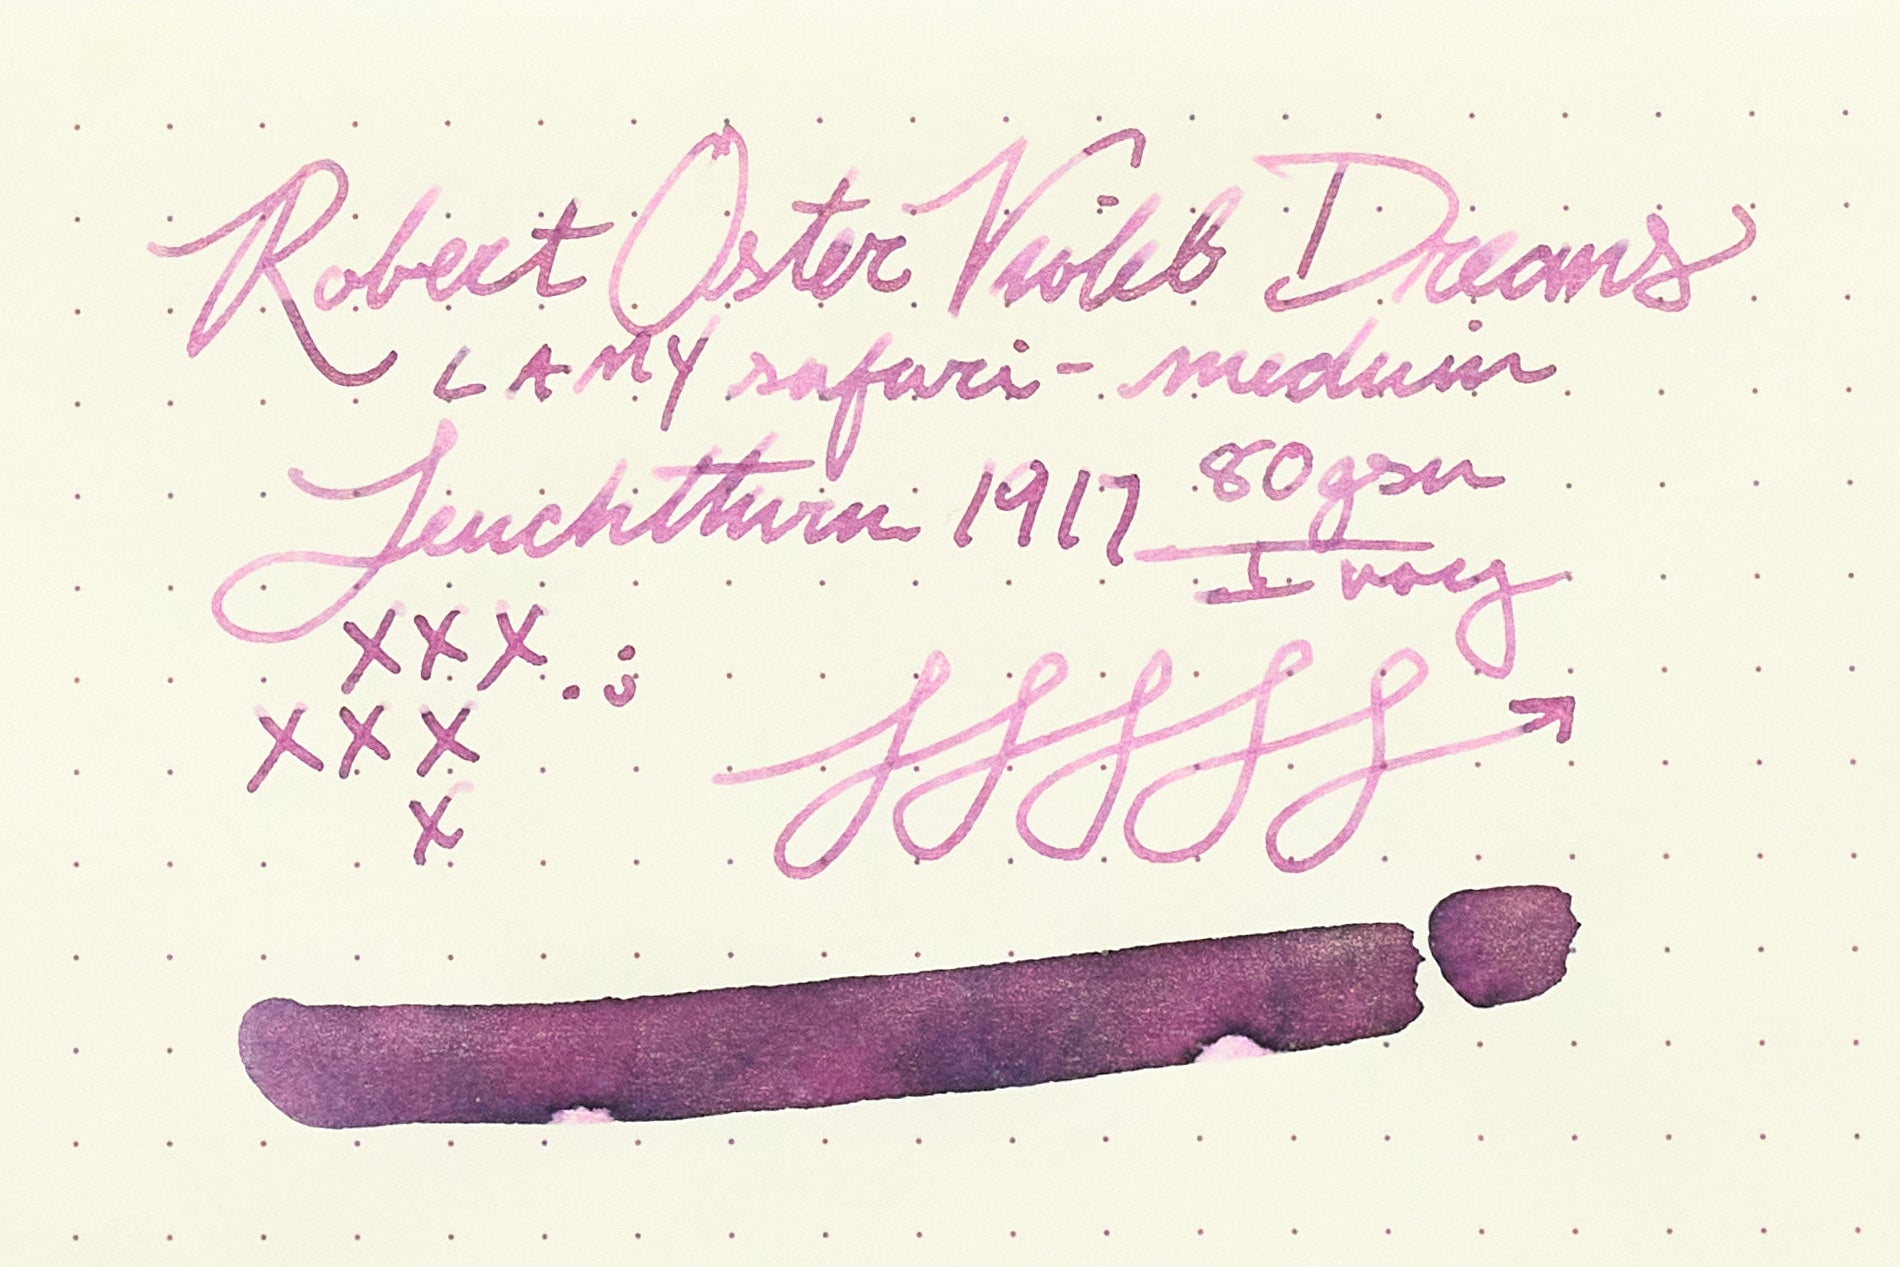 Robert Oster Violet Dreams
LAMY safari - medium
Leuchtturm 1917 80gsm
Ivory
xxx
xxx
x